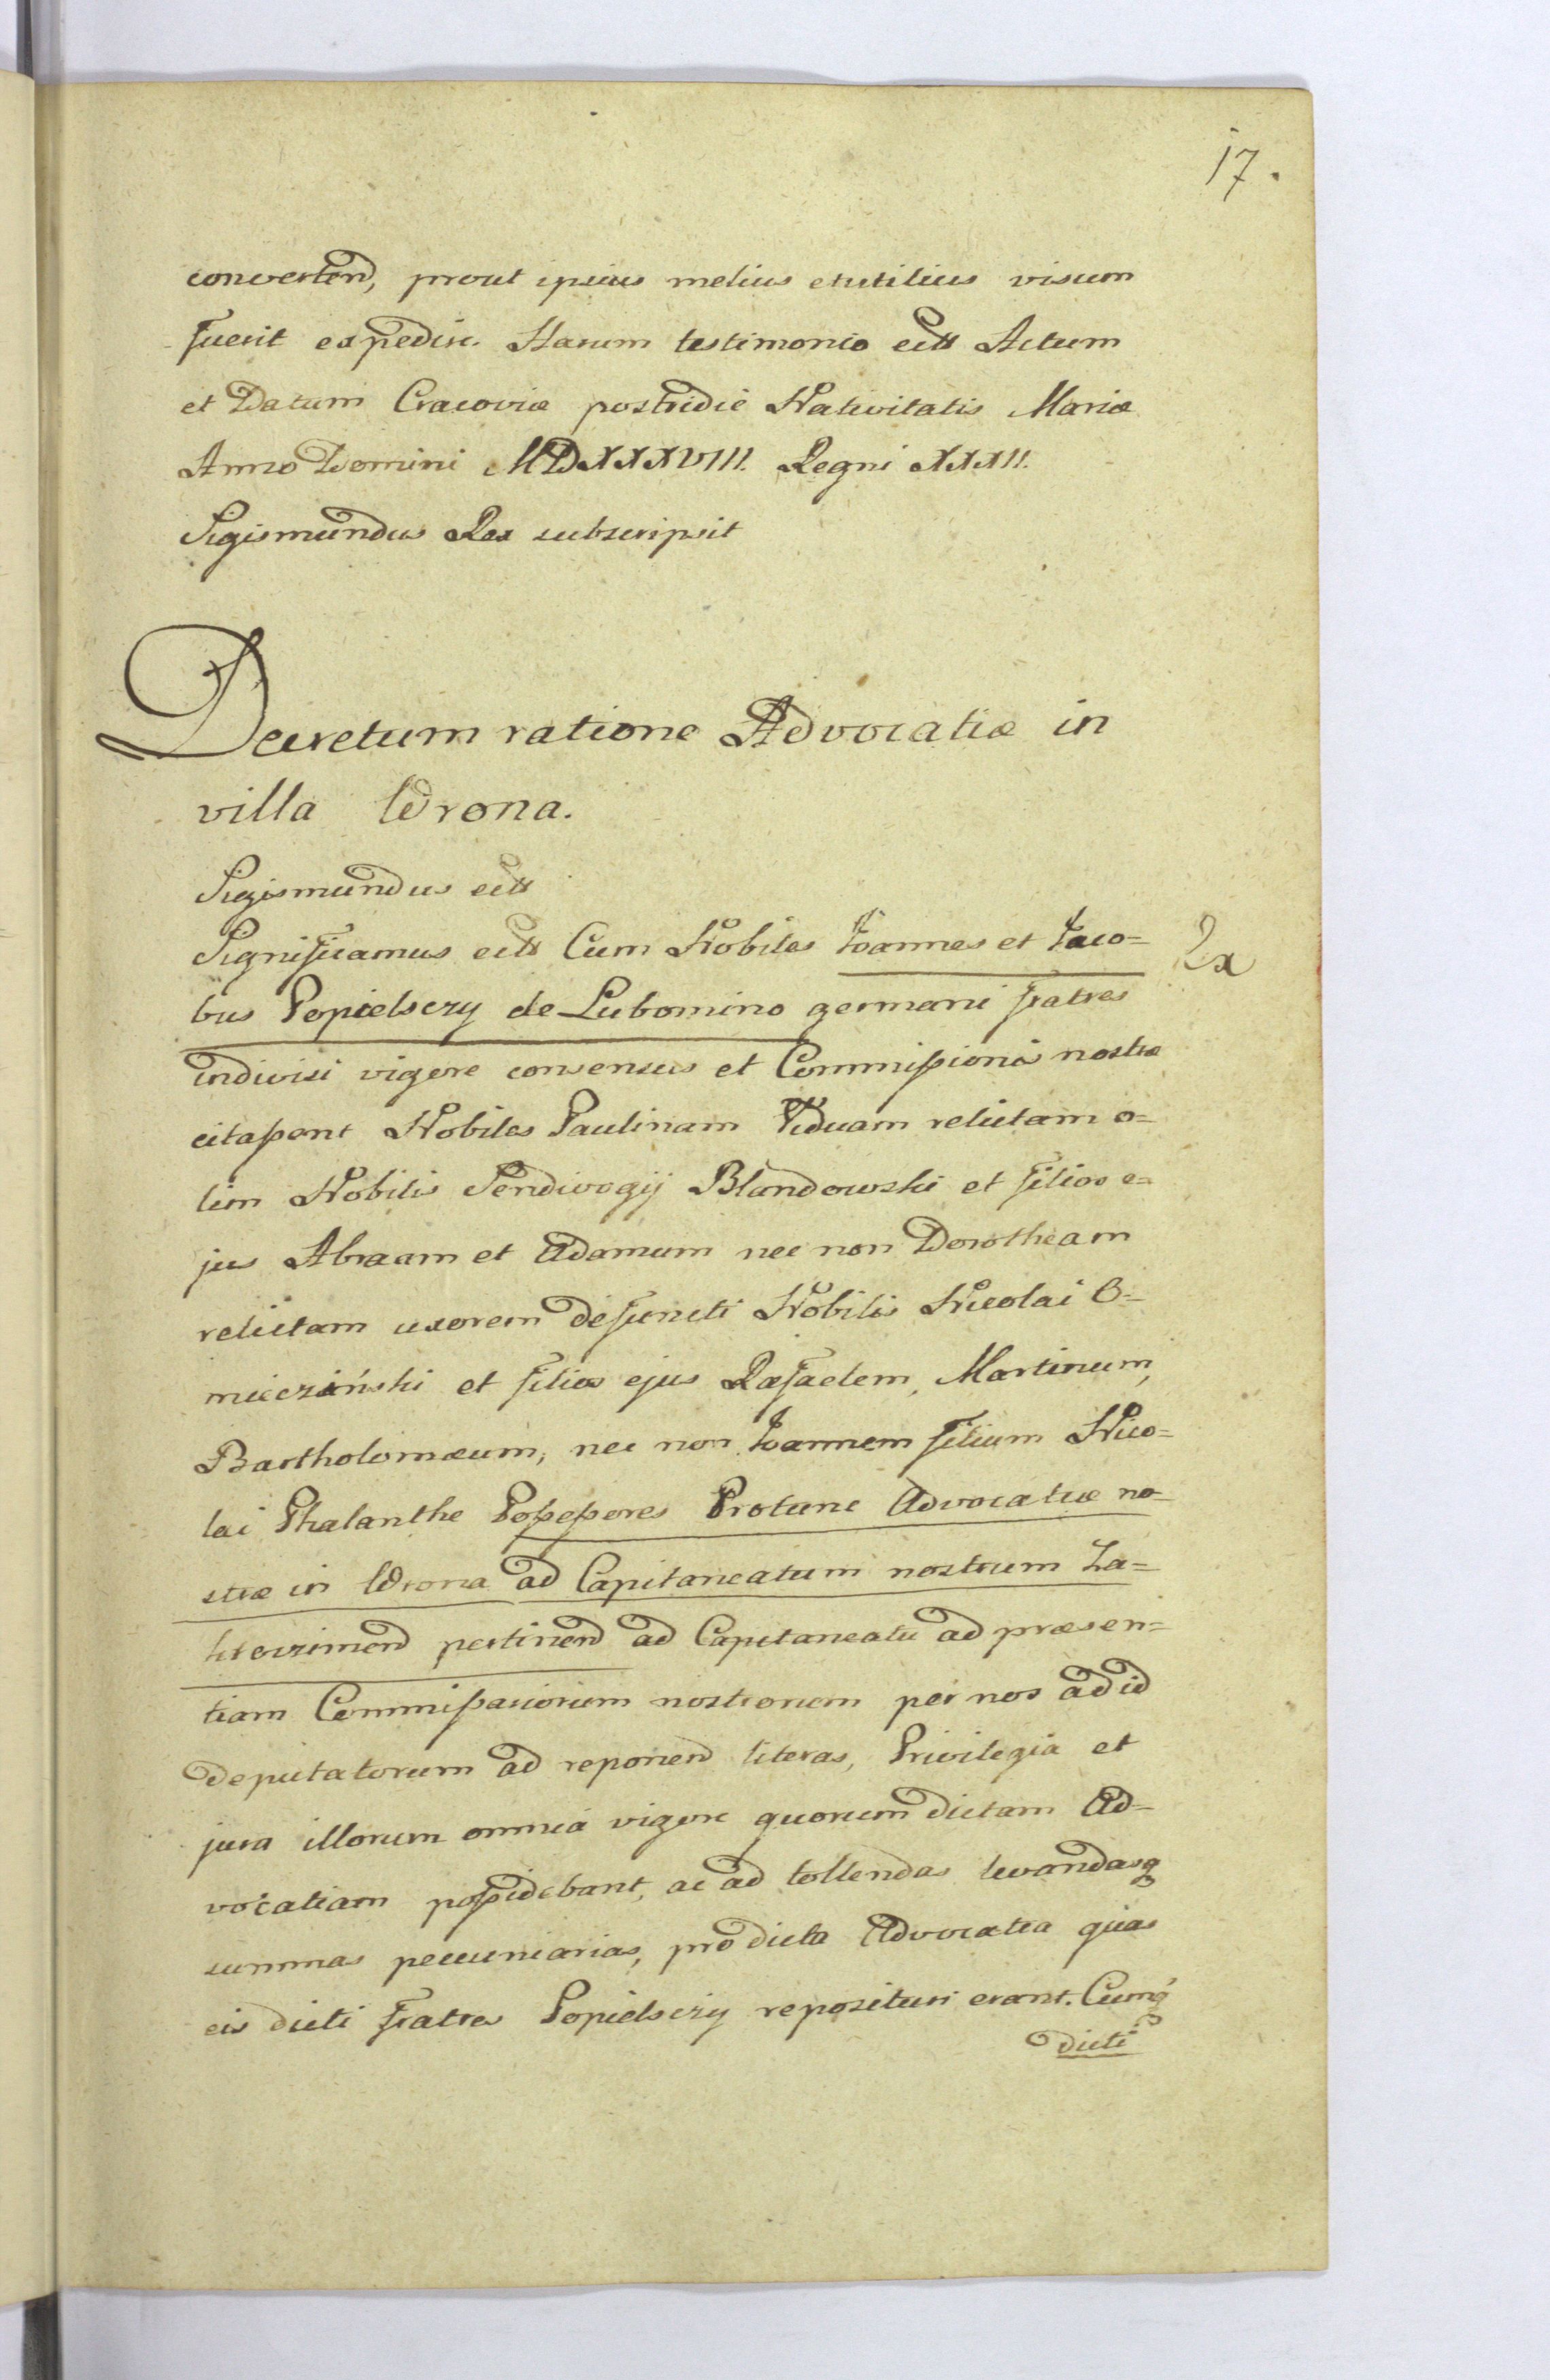 17.
convertend, prout ipsius melius et utilius visum
fuerit expedire. Harum testimonio ectt Actum
et Datum Cracoviæ postridie Nativitatis Mariæ
Anno Domini MDXXXVIII. Regni XXXII.
Sigismundus Rex subscripsit
Decretum ratione Advocatiæ in
villa Wrona.
Sigismundus ectt
Significamus ectt Cum Nobiles Joannes et Jaco=
bus Popielsczy de Lubomino germani fratres
indivisi vigore consensus et Commissionis nostræ
citassent Nobiles Paulinam Viduam relictam o=
lim Nobilis Sendivogij Blandowski et filios e=
jus Abraam et Adamum nec non Dorotheam
relictam uxorem defuncti Nobilis Nicolai O=
mieczinski et filios ejus Rafaelem, Martinum,
Bartholomæum, nec non Joannem filium Nico=
lai Phalanthe Possessores Protunc Advocatiæ no=
stræ in Wrona ad Capitaneatum nostrum Za=
kroczimend pertinend ad Capitaneatu ad præsen=
tiam Commissariorum nostrorum per nos ad id
deputatorum ad reponend literas, Privilegia et
jura illorum omnia vigore quorum dictam Ad=
vocatiam possidebant, ac ad tollendas levandasq
summas pecuniarias, pro dicta Advocatia quas
eis dicti fratres Popielsczy reposituri erant. Cumq
dicti